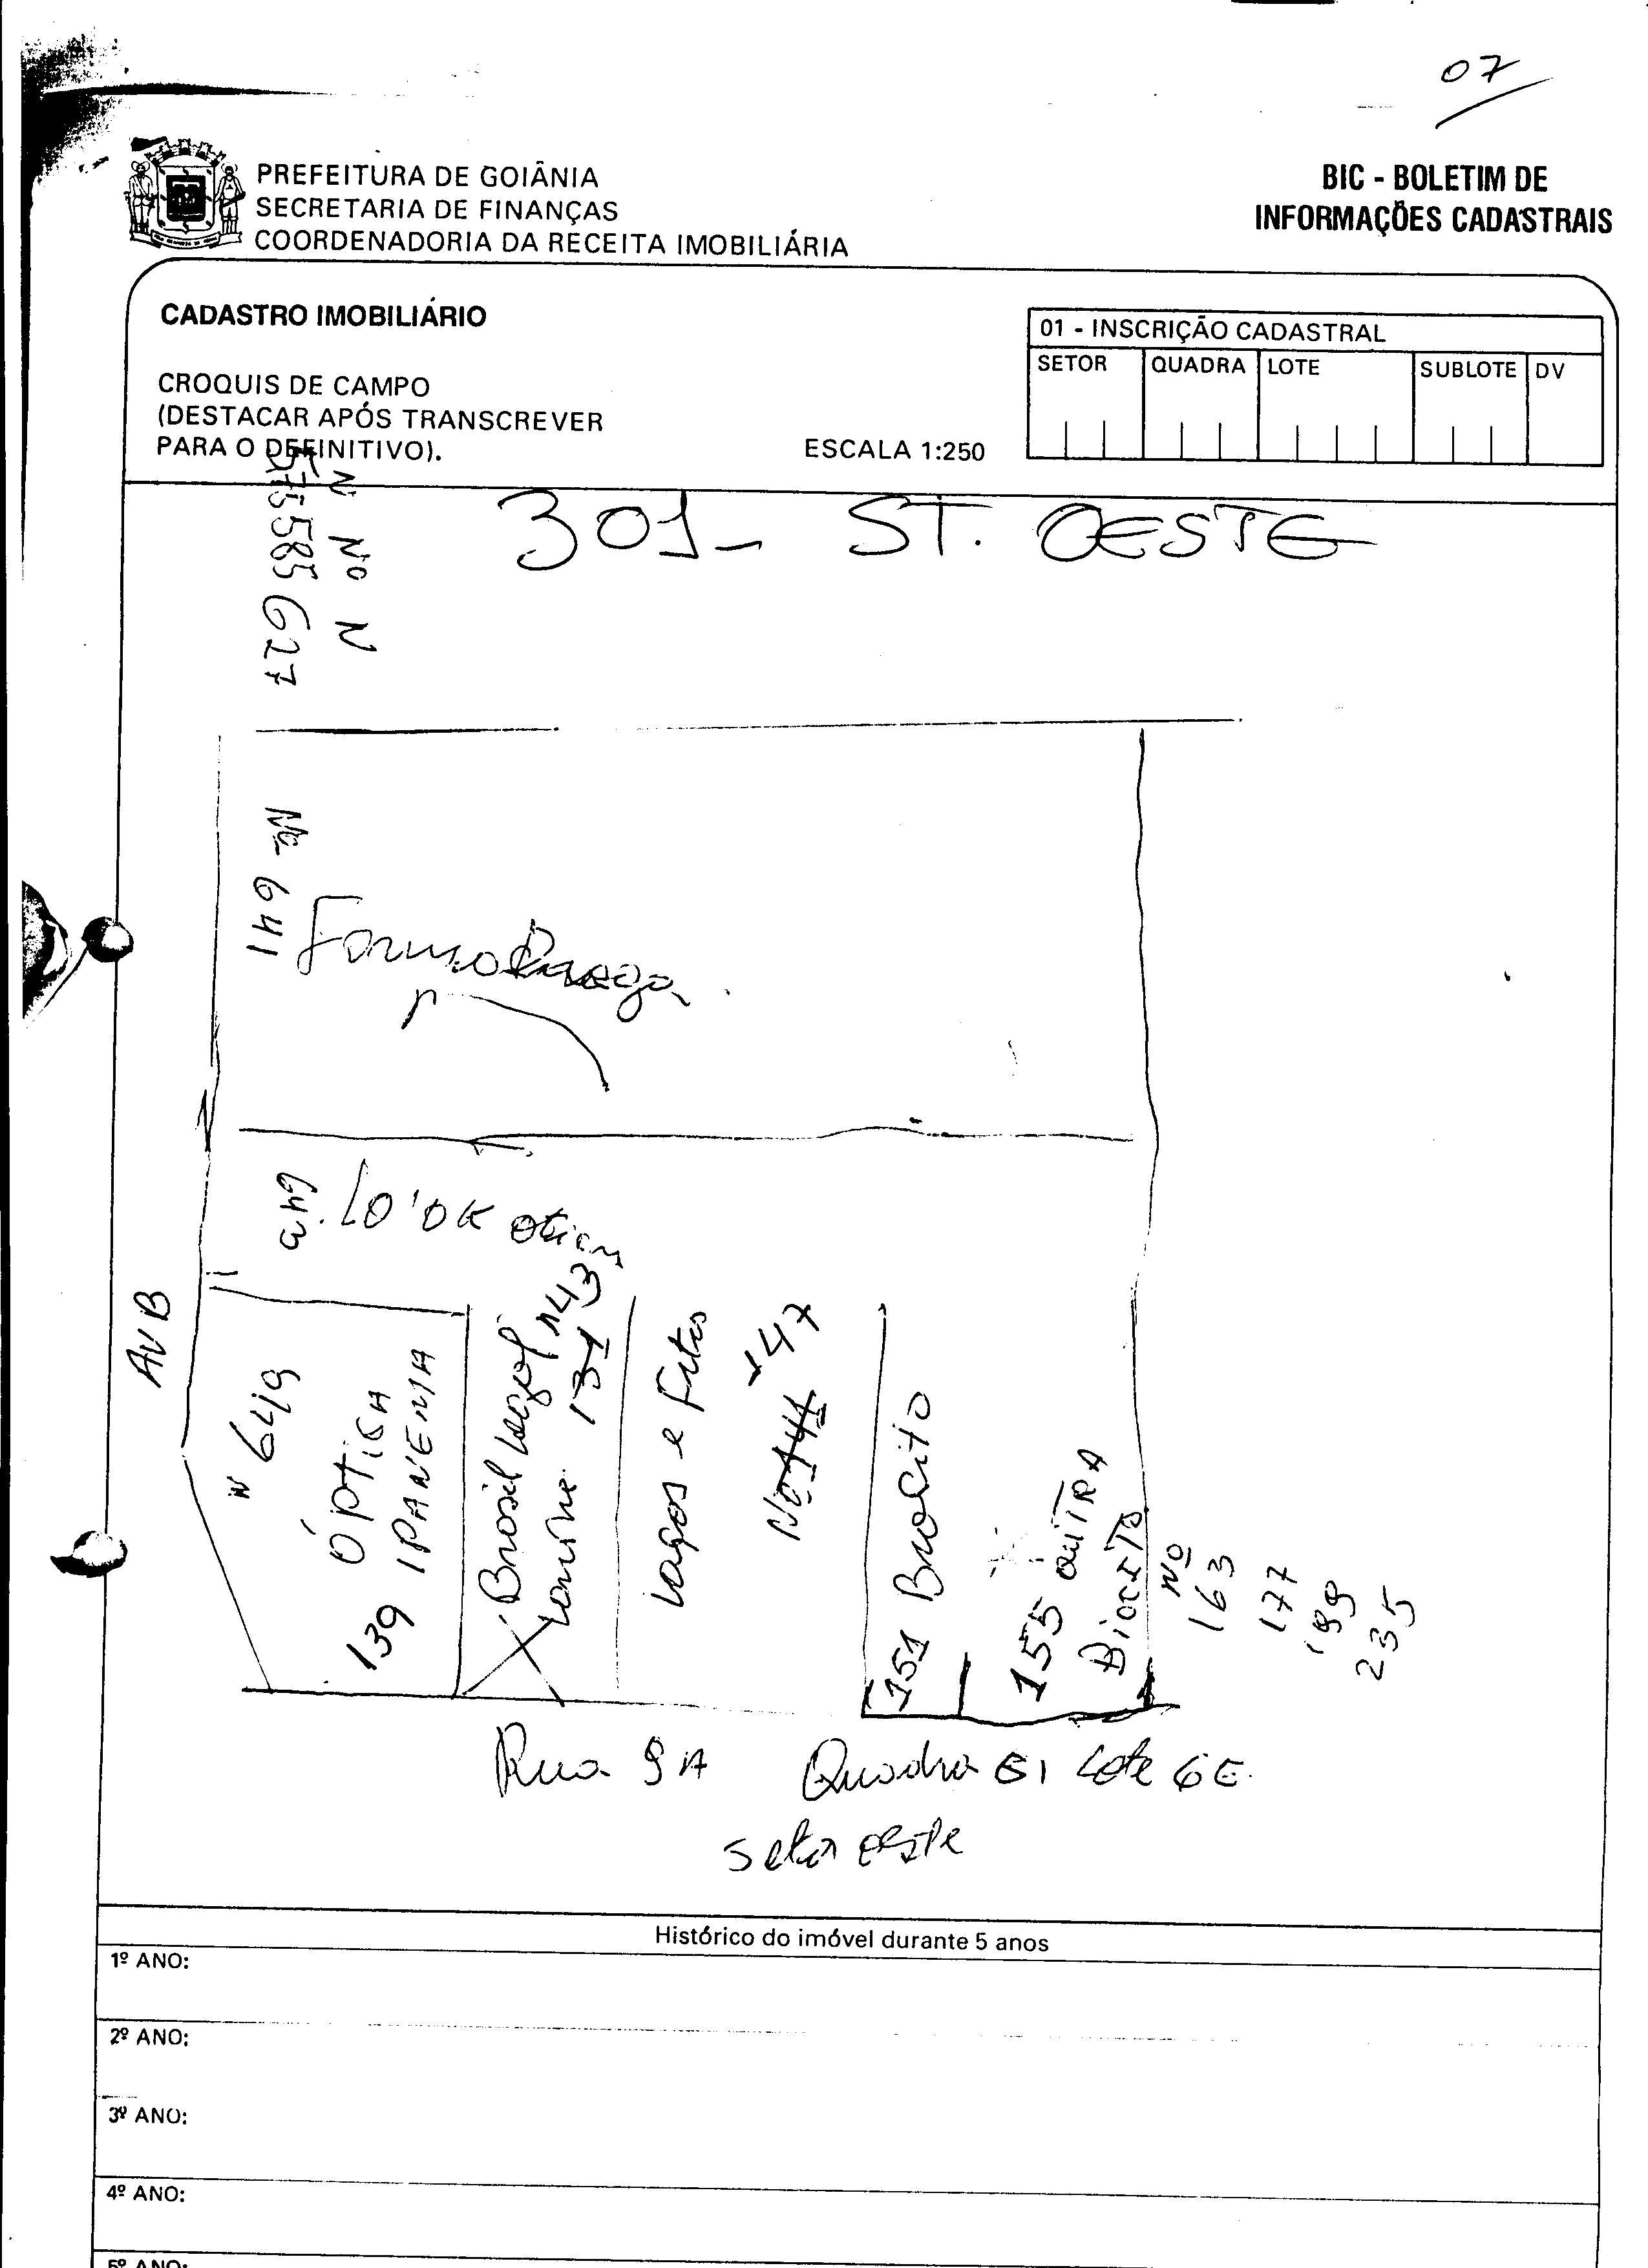 07
PREFEITURA DE GOIÂNIA
SECRETARIA DE FINANÇAS
COORDENADORIA DA RECEITA IMOBILIÁRIA
BIC - BOLETIM DE
INFORMAÇÕES CADASTRAIS
CADASTRO IMOBILIÁRIO
CROQUIS DE CAMPO
(DESTACAR APÓS TRANSCREVER
PARA O DEFINITIVO).
ESCALA 1:250
01 - INSCRIÇÃO CADASTRAL
SETOR QUADRA LOTE SUBLOTE DV
N No N
575 585 627
301- ST. OESTE
Nº 641
649
LO'OK
AVB
N 649
ÓPTICA
IPANEMA
139
Brasil 143
131
Laços e Fitas
147
No 141
151
155 OUTRA
No
163
177
199
235
Rua 9A Quadra G1 Lote 6E
Setor oeste
Histórico do imóvel durante 5 anos
1º ANO:
2º ANO:
3º ANO:
4º ANO:
5º ANO: